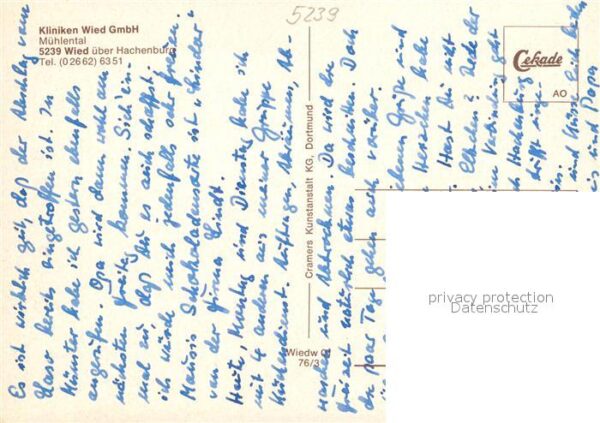 5239
Kliniken Wied GmbH
Mühlental
5239 Wied über Hachenburg
Tel. (02662) 6351
Cekade
AO
Cramers Kunstanstalt KG, Dortmund
Wiedw 01
76/3
privacy protection
Datenschutz
Es ist wirklich Zeit, daß der Nachtrag vom
bereits eingetroffen ist. In
Münster habe ich gestern ebenfalls
angerufen. Opa wird dann wohl am
nächsten Freitag kommen. Sieh ein-
mal zu, daß Du es auch schaffst.
ich würde mich jedenfalls sehr freuen.
Mausis Schokoladensorte ist "Kinder"
von der Firma Lindt.
Heute, Montag und Dienstag habe ich
mit 4 anderen aus meiner Gruppe
Küchendienst. Auftragen, Abräumen, Ab-
waschen und Abtrocknen. Da wird die
Freizeit natürlich etwas beschnitten. Doch
die paar Tage gehen auch vorüber.
Grüße und
Herzchen habe
Hast Du mit
Rede der
Verbindung geht
Hachenburg
und Küsse
und Papa